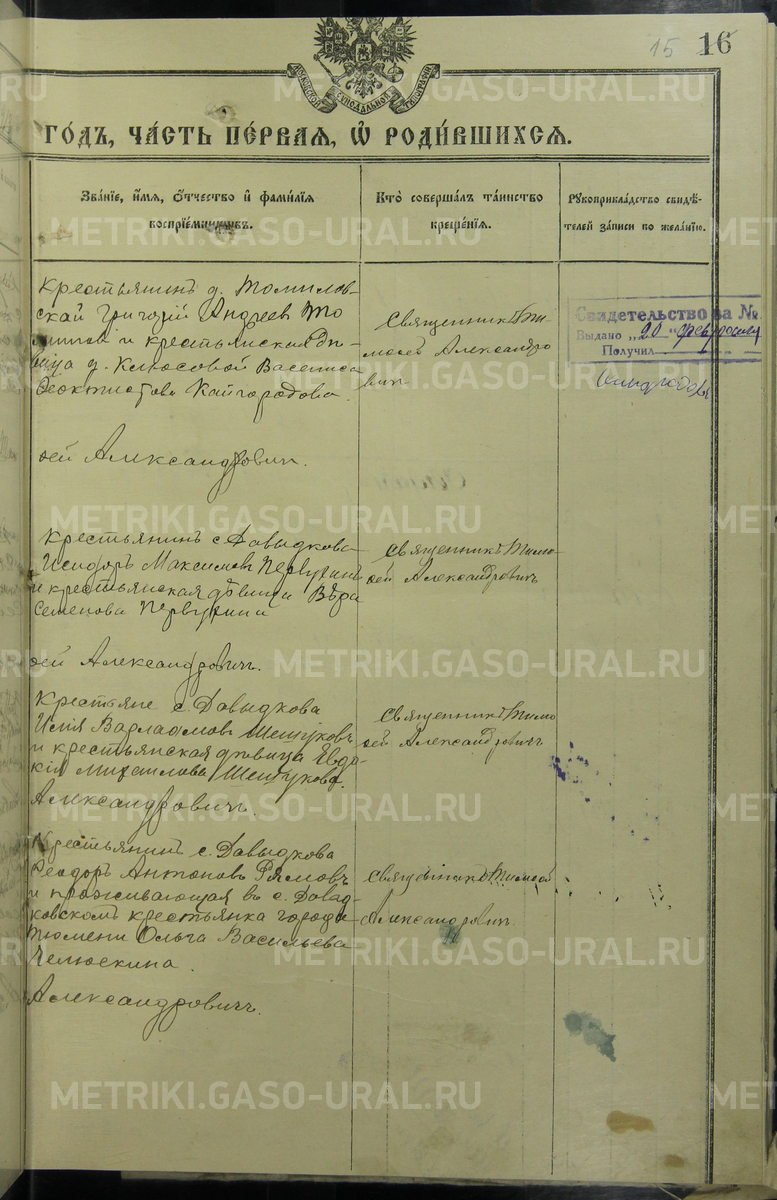 15 16
МОСКОВСКОЙ СѴНОДАЛЬНОЙ ТИПОГРАФІИ
ГО́ДЪ, ЧА́СТЬ ПЕ́РВАЯ, Ѽ РОДИ́ВШИХСЯ.
Зва́нїе, и́мя, о́тчество и҆ фами́лїя
воспрїе́мниковъ.
Кто̀ соверша́лъ та́инство
креще́нїя.
Рукоприкла́дство свидѣ́-
телей за́писи по жела́нїю.
Крестьянинъ д. Томилов-
ской Григорій Андреевъ То
миловъ и крестьянская дѣ-
вица д. Клюсовой Васса
Феоктистова Кайгородова.
Священникъ Ти-
моѳей Александро
вич
Свидетельство за №
Выдано „20“ февраля
Получил
ѳей Александрович.
Крестьянинъ с. Давыдкова
Исидоръ Максимовъ Первухинъ
и крестьянская дѣвица Вѣра
Семенова Первухина
Священникъ Тимо-
ѳей Александровичъ
ѳей Александровичъ.
Крестьяне с. Давыдкова
Илія Варлаамовъ Шешуковъ
и крестьянская дѣвица Евдо
кія Михайлова Шешукова.
Священникъ Тимо
ѳей Александровичъ
Александровичъ.
Крестьянинъ с. Давыдкова
Ѳеодоръ Антоновъ Рямовъ
и проживающая въ с. Давыд-
ковскомъ крестьянка города
Тюмени Ольга Васильева
Челюскина.
Священникъ Тимоѳей
Александровичъ.
Александровичъ.
METRIKI.GASO-URAL.RU